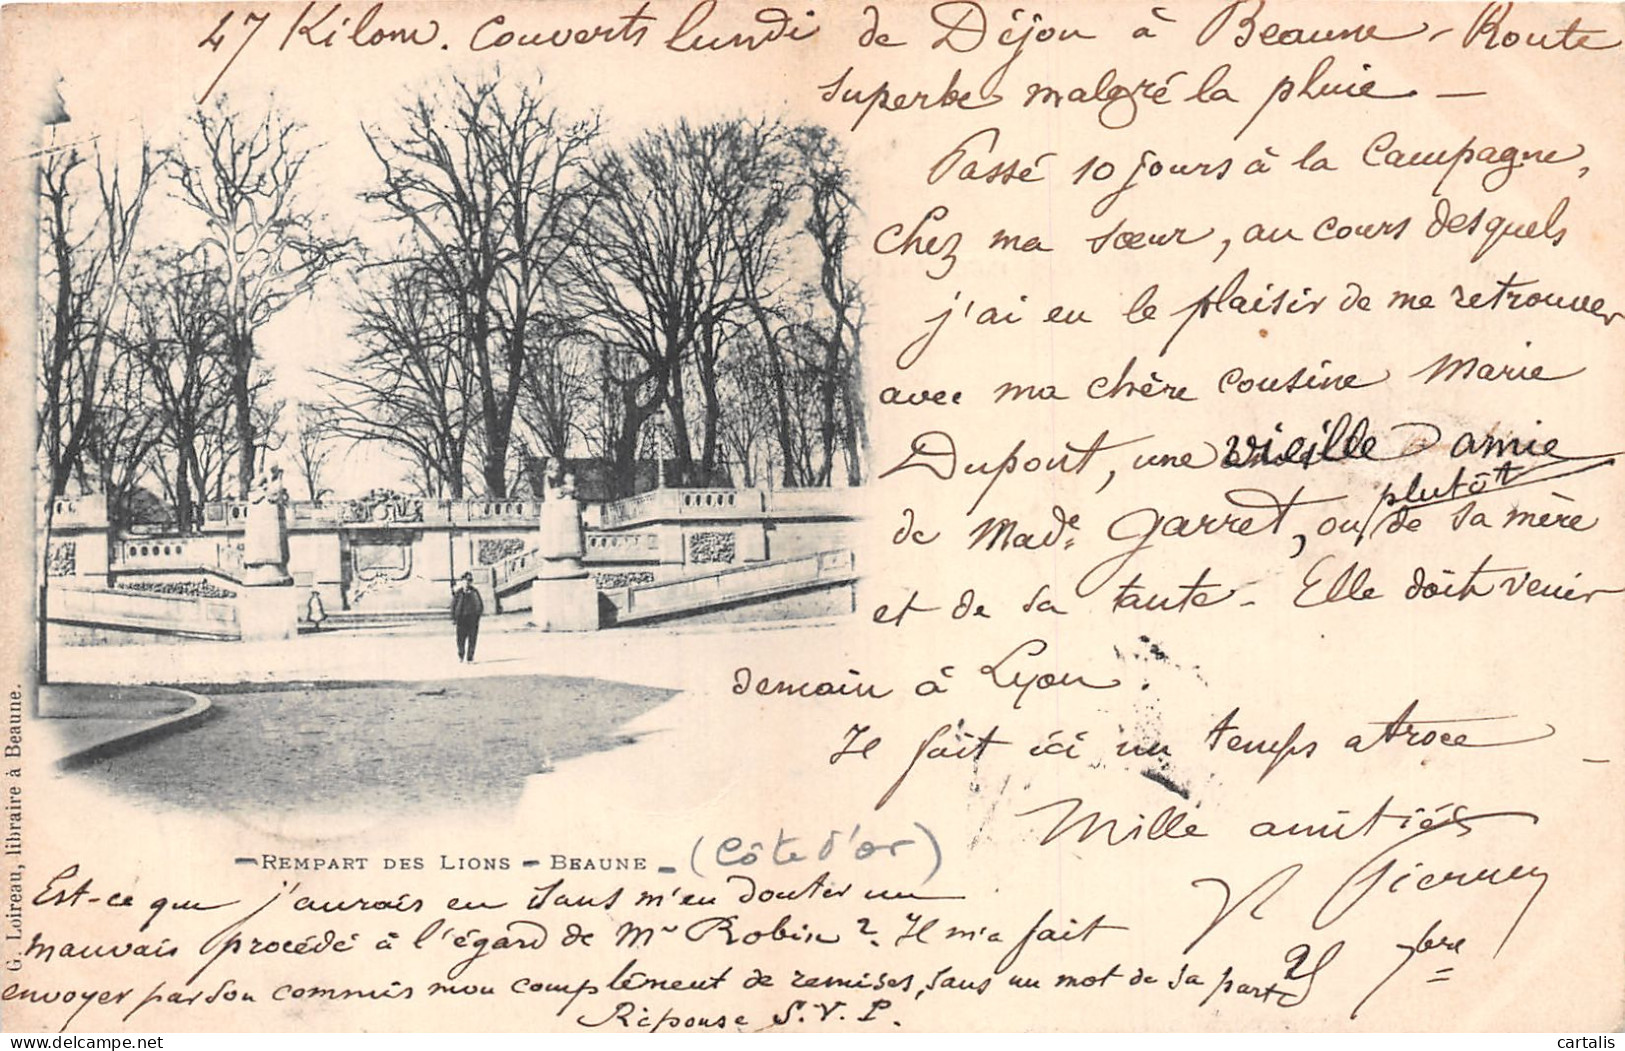 47 Kilom. Couverts lundi de Déjon à Beaune - Route
superbe malgré la pluie. —
Passé 10 jours à la Campagne,
chez ma sœur, au cours desquels
j'ai eu le plaisir de me retrouver
avec ma chère cousine Marie
Dupont, une vieille amie
plutôt
de Made. Garret, ou de sa mère
et de sa tante - Elle doit venir
demain à Lyon.
Il fait ici un temps atroce —
Mille amitiés
25 7bre
— REMPART DES LIONS — BEAUNE — (Côte d'or)
Est-ce que j'aurais eu sans m'en douter un
mauvais procédé à l'égard de Mr Robin ?. Il m'a fait
envoyer par son commis mon complément de remises, sans un mot de sa part
Réponse S.V.P.
G. Loireau, libraire à Beaune.
cartalis